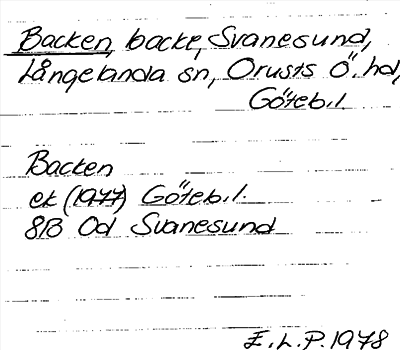 Backen, backe, Svanesund,
Långelanda sn, Orusts ö. hd,
Göteb.l.
Backen
ek (1977) Göteb.l.
8B 0d Svanesund
E.L.P. 1978